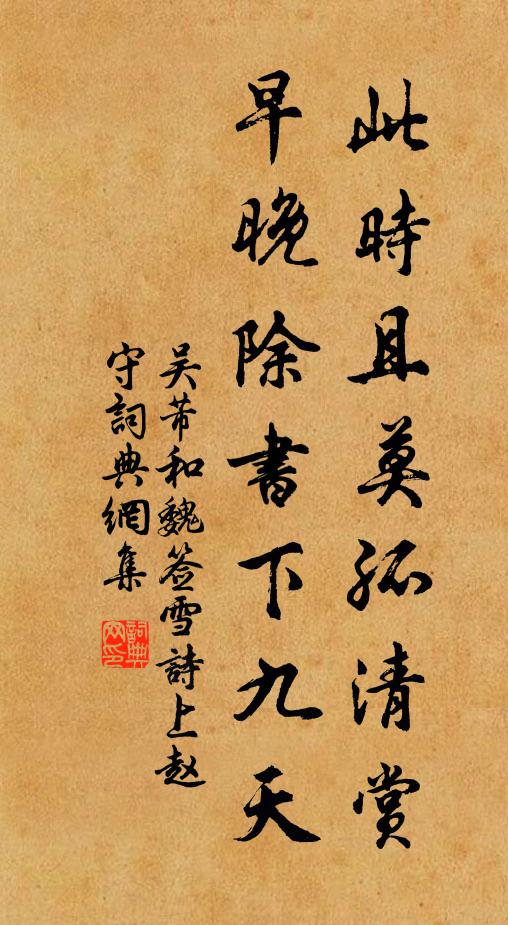 此時且莫孤清賞
早晚除書下九天
吴芾和魏签雪詩上赵
守詞典網集
詞典
网印